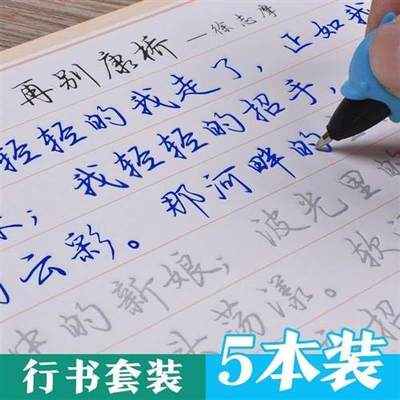 再别康桥 —徐志摩
轻轻的我走了，正如我
；我轻轻的招手，
的云彩。那河畔的
中的新娘；波光里的
头荡漾。软
行书套装
5本装